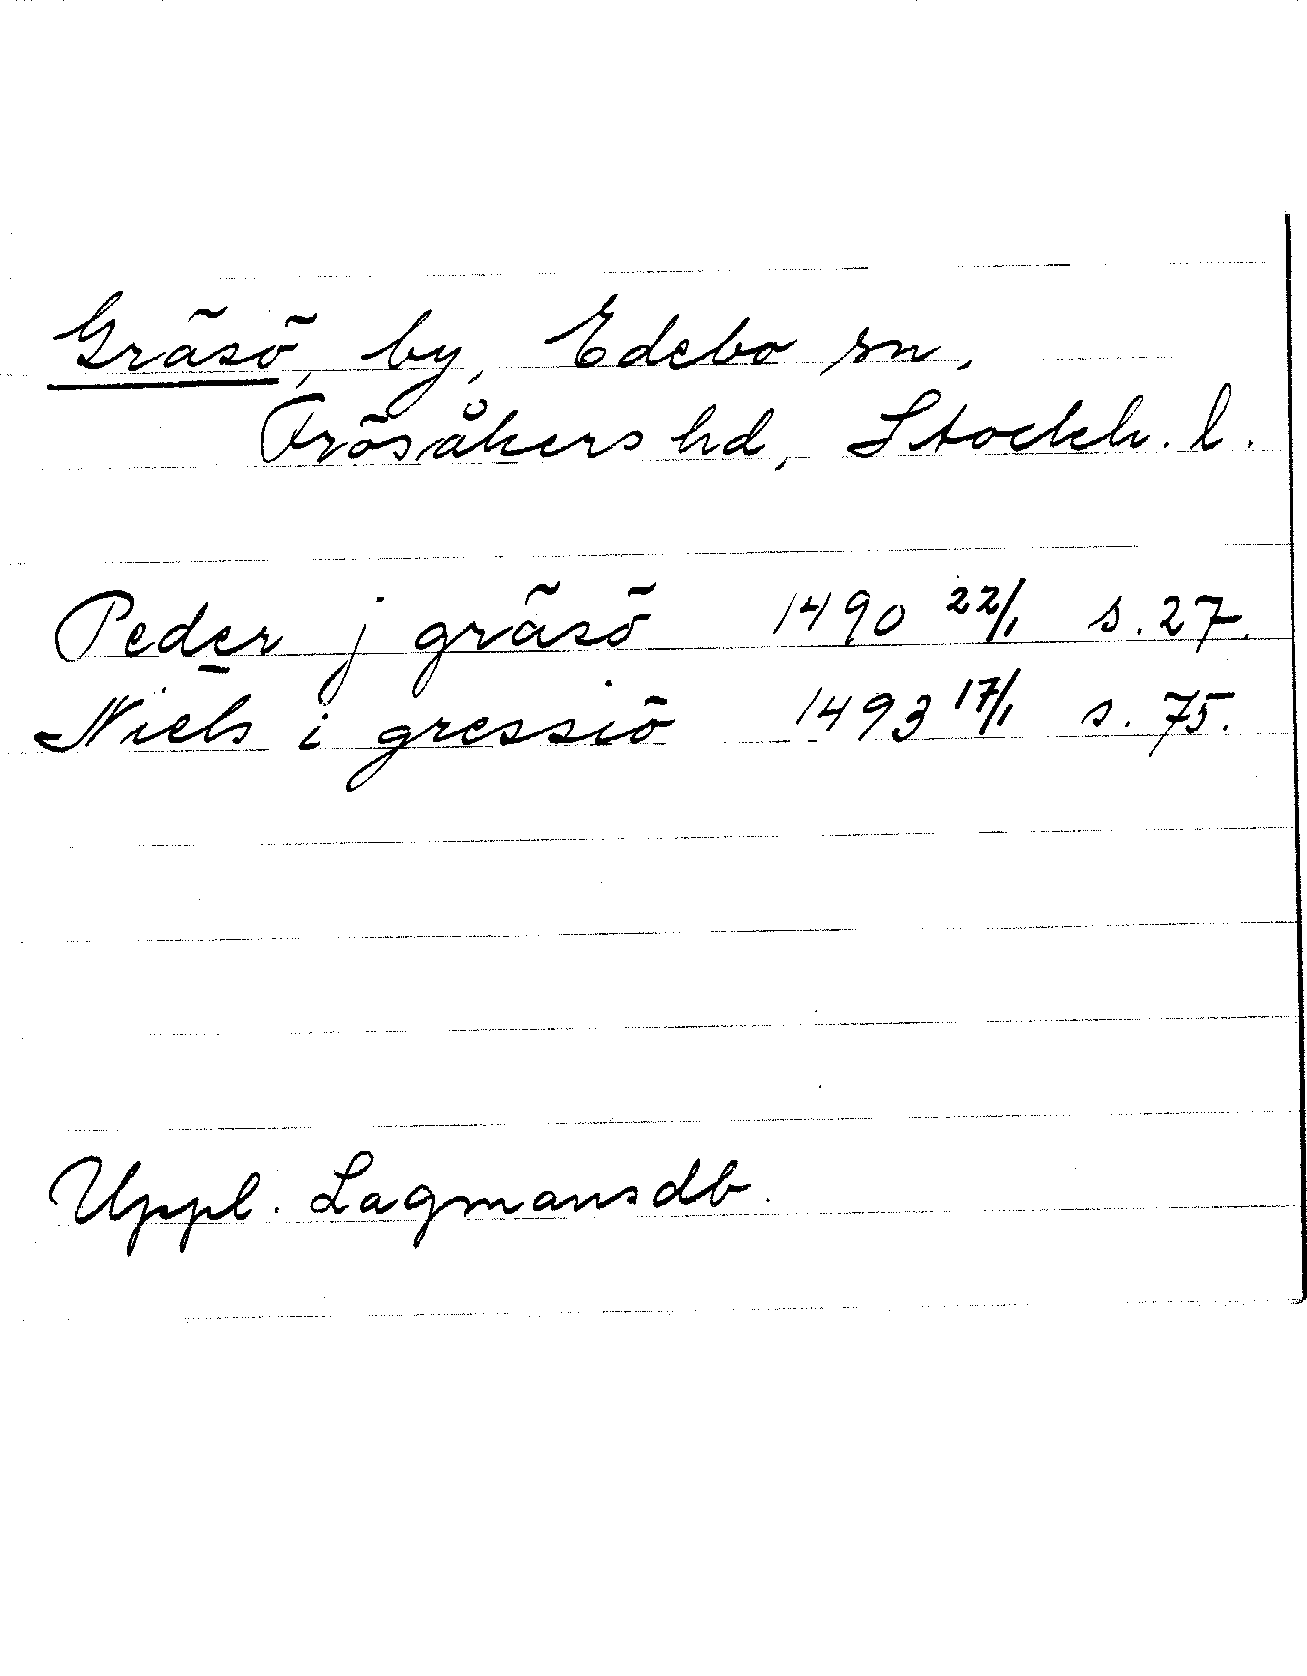 Gräsö, by, Edebo sn,
Frösåkers hd, Stockh. l.
Peder j gräsö 1490 22/1 s. 27.
Niels i gressiö 1493 17/1 s. 75.
Uppl. Lagmansdb.